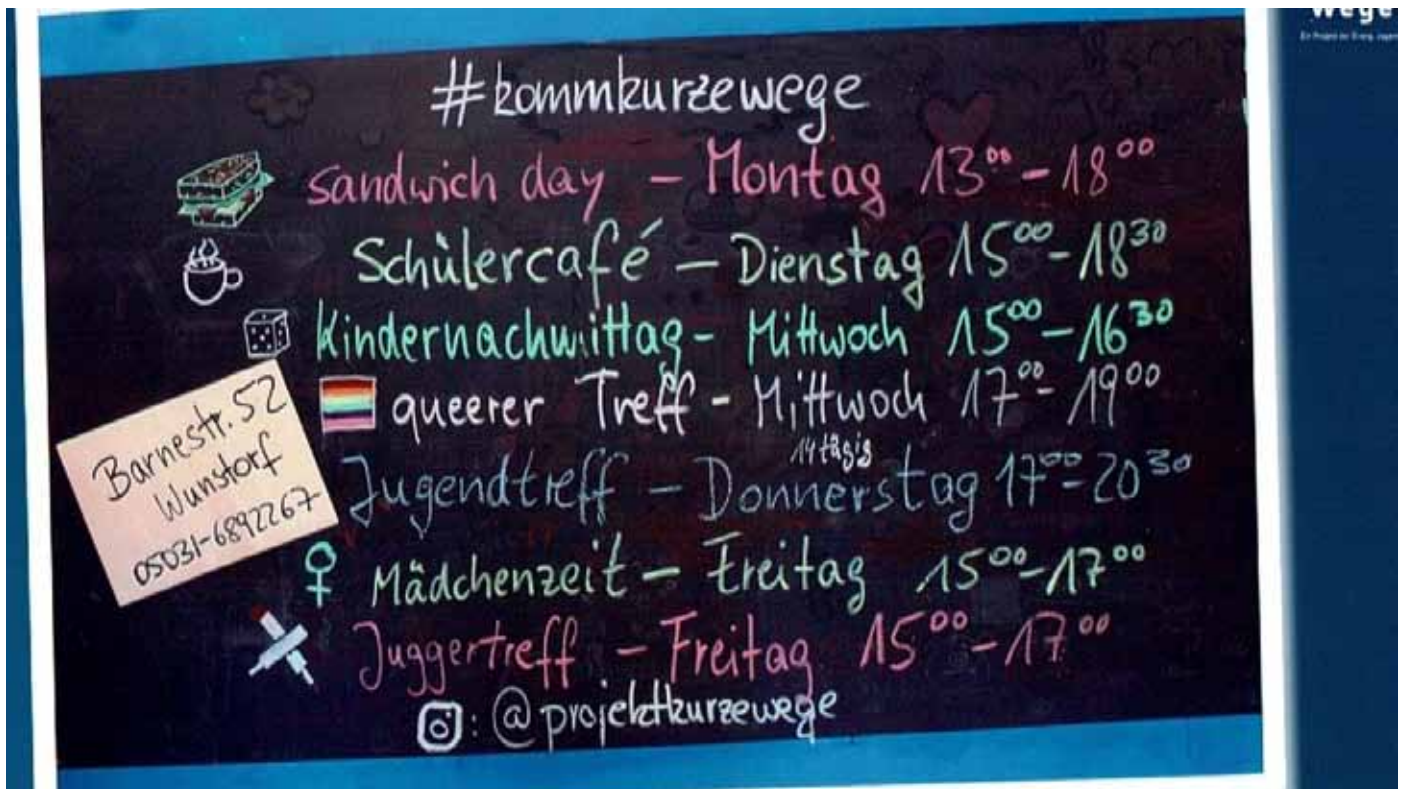 Wege
#kommkurzewege
sandwich day – Montag 13⁰⁰–18⁰⁰
Schülercafé – Dienstag 15⁰⁰–18³⁰
Kindernachmittag – Mittwoch 15⁰⁰–16³⁰
queerer Treff – Mittwoch 17⁰⁰–19⁰⁰
14tägig
Jugendtreff – Donnerstag 17⁰⁰–20³⁰
Mädchenzeit – Freitag 15⁰⁰–17⁰⁰
Juggertreff – Freitag 15⁰⁰–17⁰⁰
: @projektkurzewege
Barnestr. 52
Wunstorf
05031-6892267